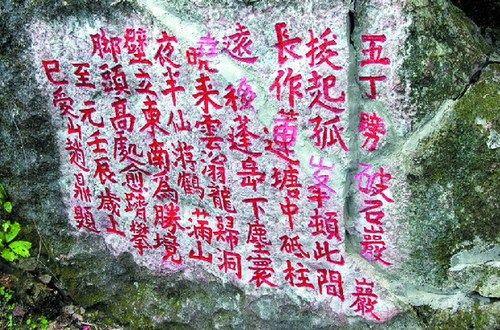 五丁劈破石巖巖
拔起孤峯頓此間
長作蓮塘中砥柱
遠移蓬島下塵寰
曉来雲滃龍歸洞
夜半仙游鶴滿山
壁立東南為勝境
脚頭高處愈躋攀
至元壬辰歲上
巳象山趙鼎題